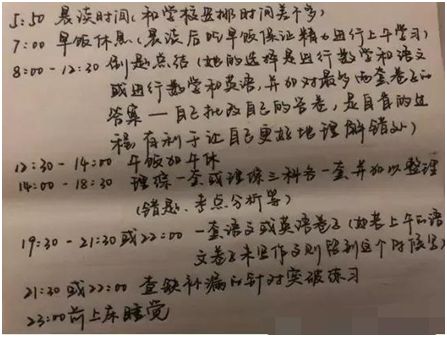 5:50 晨读时间(和学校安排时间差不多)
7:00 早饭休息(晨读后吃早饭保证精力进行上午学习)
8:00-12:30 例题总结(她的选择是进行数学和语文
或进行数学和英语,并加对最多两套卷子的
答案—自己批改自己的答卷,是自省的过
程,有利于让自己更好地理解错处)
12:30-14:00 午饭加午休
14:00-18:30 理综一套或理综三科各一套并加以整理
(错题、考点分析等)
19:30-21:30或22:00 一套语文或英语卷子(如若上午的语
文卷子未写作文则留到这个时候写)
21:30或22:00 查缺补漏的针对突破练习
23:00前上床睡觉